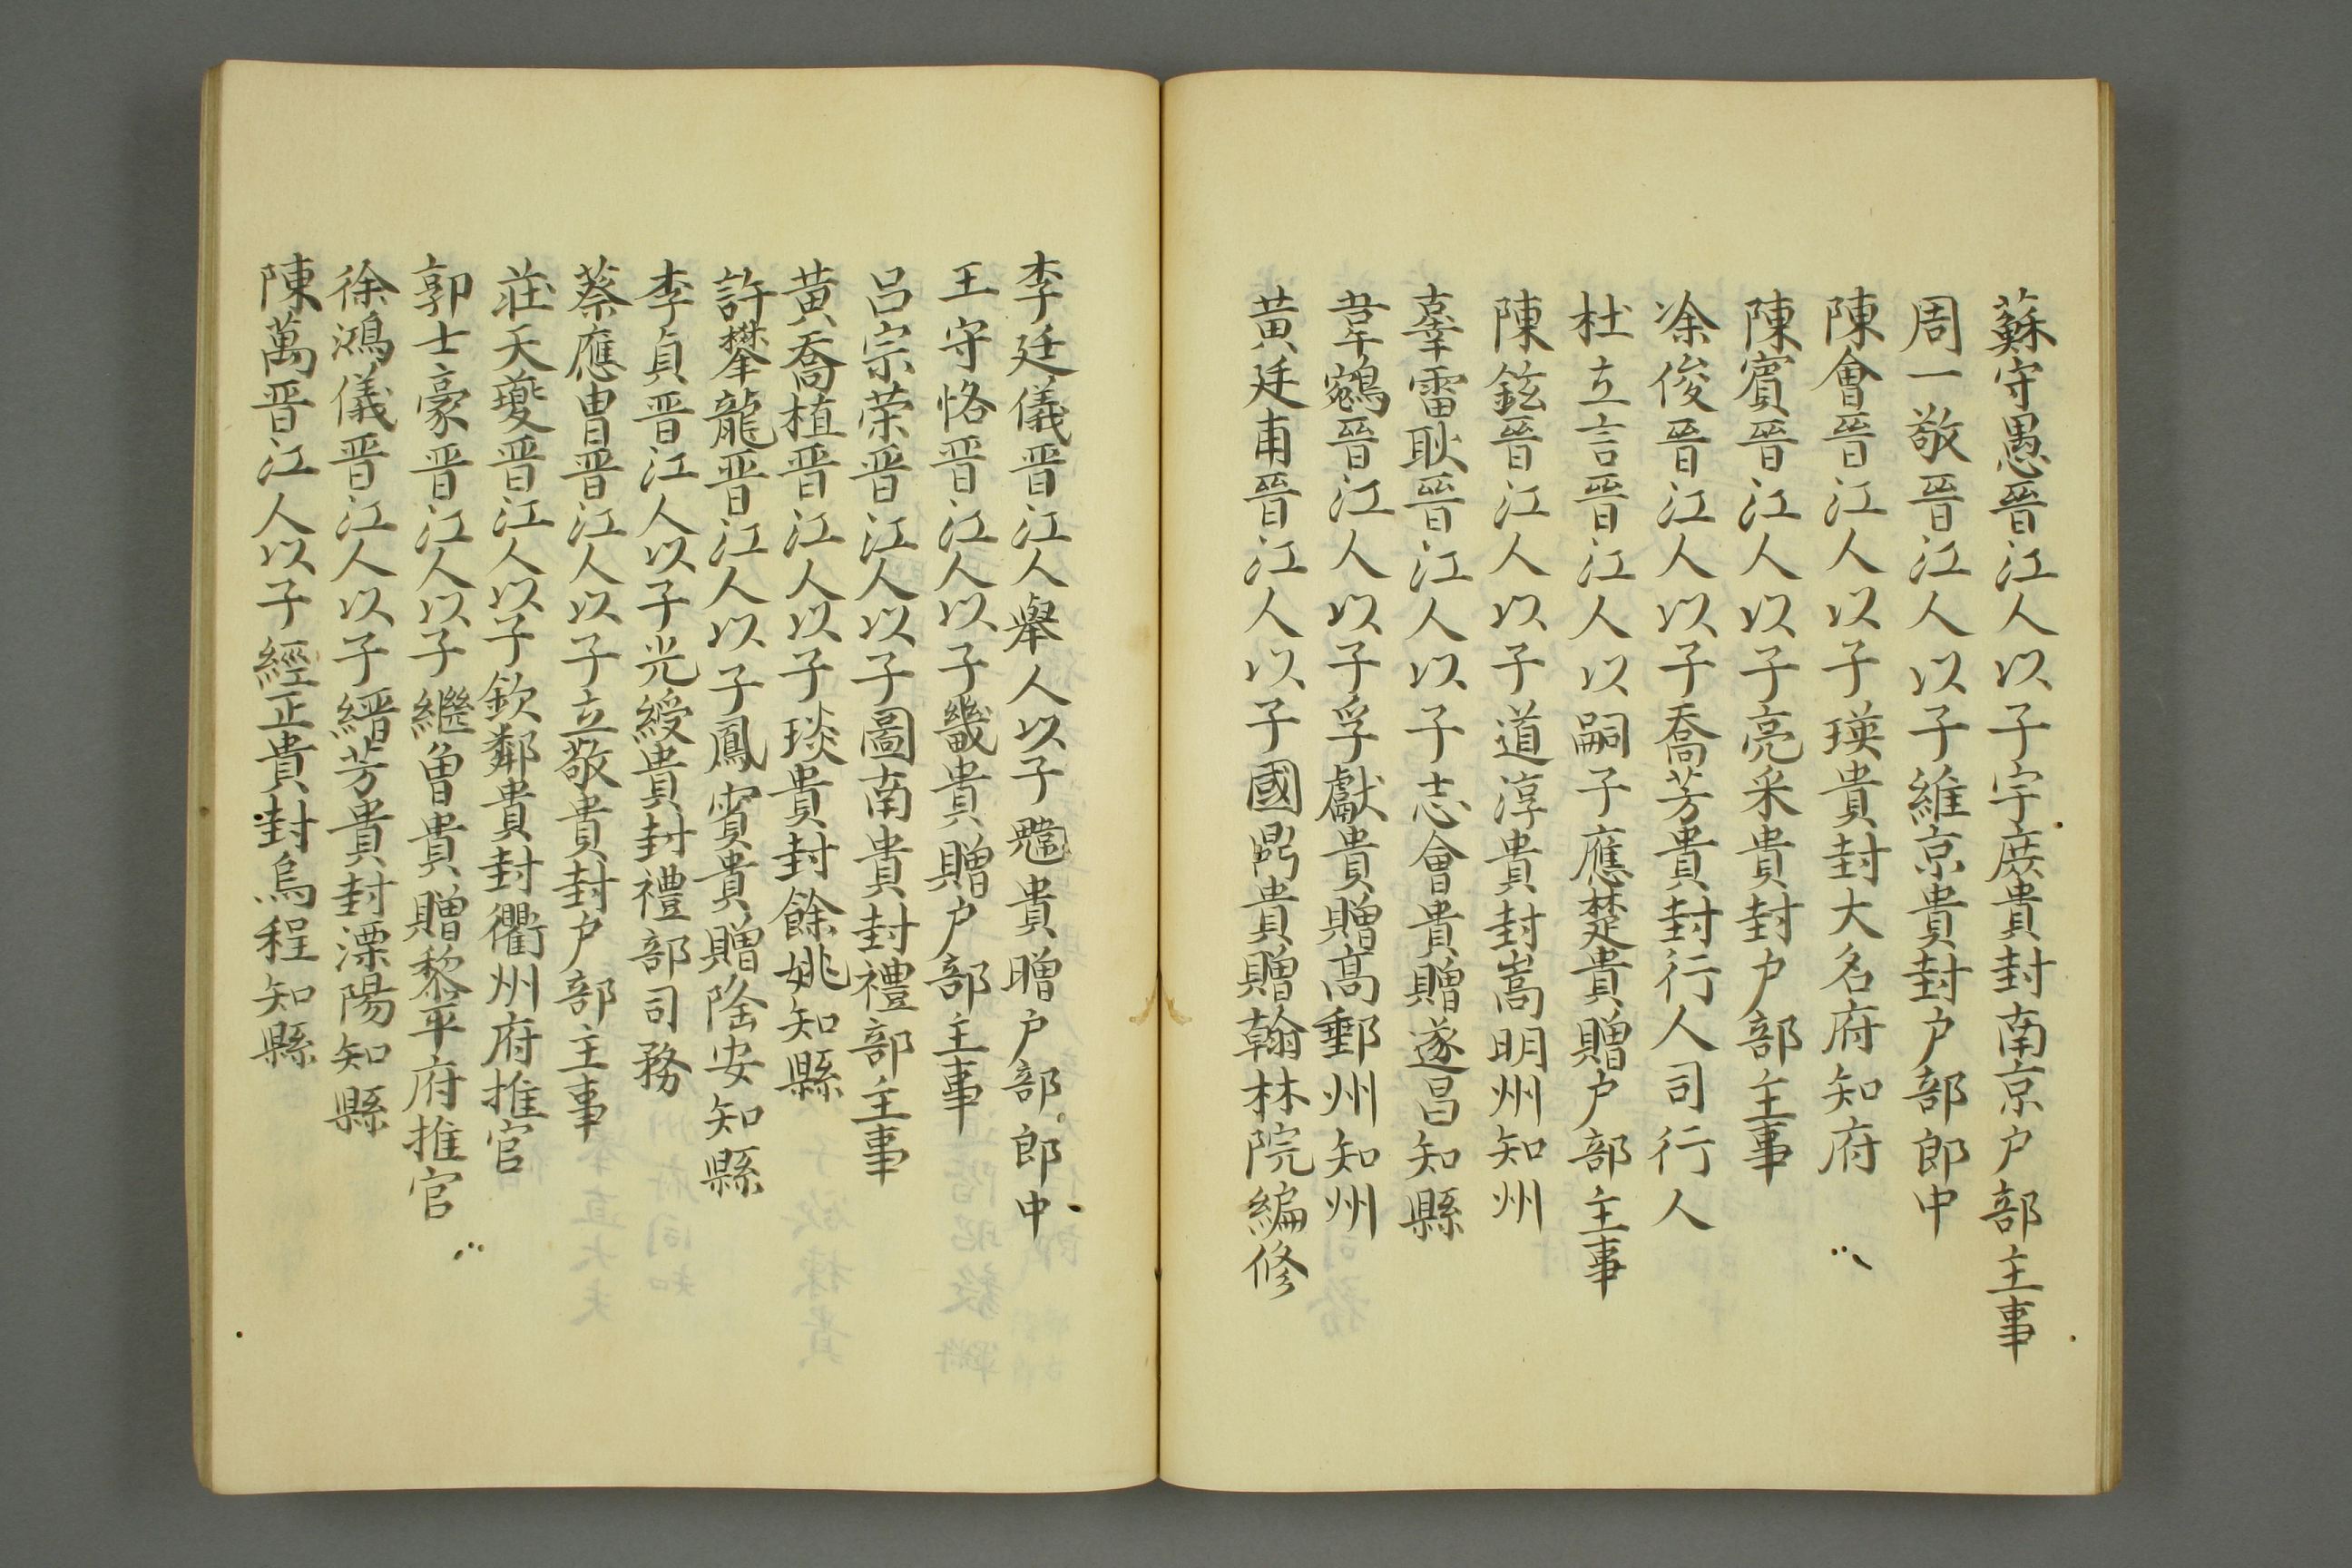 蘇守愚晉江人以子宇庶貴封南京户部主事
周一敬晉江人以子維京貴封户部郎中
陳會晉江人以子瑛貴封大名府知府
陳賓晉江人以子亮采貴封户部主事
凃俊晉江人以子喬芳貴封行人司行人
杜立言晉江人以嗣子應楚貴贈户部主事
陳鉉晉江人以子道淳貴封嵩明州知州
辜雷耿晉江人以子志會貴贈遂昌知縣
辜鵷晉江人以子孚獻貴贈高郵州知州
黄廷甫晉江人以子國鼎貴贈翰林院編修
李廷儀晋江人舉人以子貴贈户部郎中
王守恪晋江人以子畿貴贈户部主事
吕宗荣晋江人以子圖南貴封禮部主事
黄喬植晋江人以子琰貴封餘姚知縣
許攀龍晋江人以子鳳賓貴贈陸安知縣
李貞晋江人以子光綬貴封禮部司務
蔡應曹晋江人以子立敬貴封户部主事
莊天夔晋江人以子欽鄰貴封衢州府推官
郭士豪晋江人以子繼曾貴贈黎平府推官
徐鴻儀晋江人以子縉芳貴封溧陽知縣
陳萬晋江人以子經正貴封烏程知縣